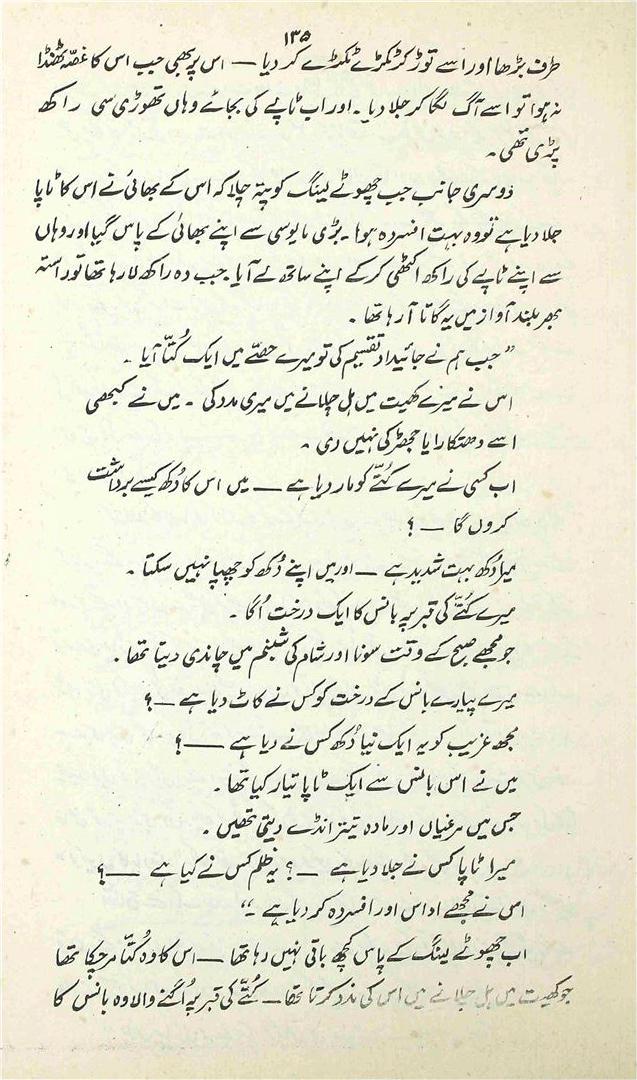 ۱۳۵
طرف بڑھا اور اسے توڑ کر ٹکڑے ٹکڑے کر دیا — اس پر بھی جب اس کا غصّہ ٹھنڈا
نہ ہوا تو اسے آگ لگا کر جلا دیا ۔ اور اب ٹاپے کی بجائے وہاں تھوڑی سی راکھ
پڑی تھی ۔
دوسری جانب جب چھوٹے لینگ کو پتہ چلا کہ اس کے بھائی نے اس کا ٹاپا
جلا دیا ہے تو وہ بہت افسردہ ہوا ۔ بڑی مایوسی سے اپنے بھائی کے پاس گیا اور وہاں
سے اپنے ٹاپے کی راکھ اکٹھی کر کے اپنے ساتھ لے آیا ۔ جب وہ راکھ لا رہا تھا تو راستہ
بھر بلند آواز میں یہ گاتا آ رہا تھا ۔
” جب ہم نے جائیداد تقسیم کی تو میرے حصّے میں ایک کُتّا آیا ۔
اس نے میرے کھیت میں ہل چلانے میں میری مدد کی ۔ میں نے کبھی
اسے دھتکارا یا جھڑکی نہیں دی ۔
اب کسی نے میرے کُتّے کو مار دیا ہے — میں اس کا دُکھ کیسے برداشت
کروں گا — ؟
میرا دُکھ بہت شدید ہے — اور میں اپنے دُکھ کو چھپا نہیں سکتا ۔
میرے کُتّے کی قبر پہ بانس کا ایک درخت اُگا ۔
جو مجھے صبح کے وقت سونا اور شام کی شبنم میں چاندی دیتا تھا ۔
میرے پیارے بانس کے درخت کو کس نے کاٹ دیا ہے — ؟
مجھ غریب کو یہ ایک نیا دُکھ کس نے دیا ہے — ؟
میں نے اس بانس سے ایک ٹاپا تیار کیا تھا ۔
جس میں مرغیاں اور مادہ تیتر انڈے دیتی تھیں ۔
میرا ٹاپا کس نے جلا دیا ہے — ؟ یہ ظلم کس نے کیا ہے — ؟
اسی نے مجھے اداس اور افسردہ کر دیا ہے ۔“
اب چھوٹے لینگ کے پاس کچھ باقی نہیں رہا تھا — اس کا وہ کُتّا مر چکا تھا
جو کھیت میں ہل چلانے میں اس کی مدد کرتا تھا — کُتّے کی قبر پہ اُگنے والا وہ بانس کا